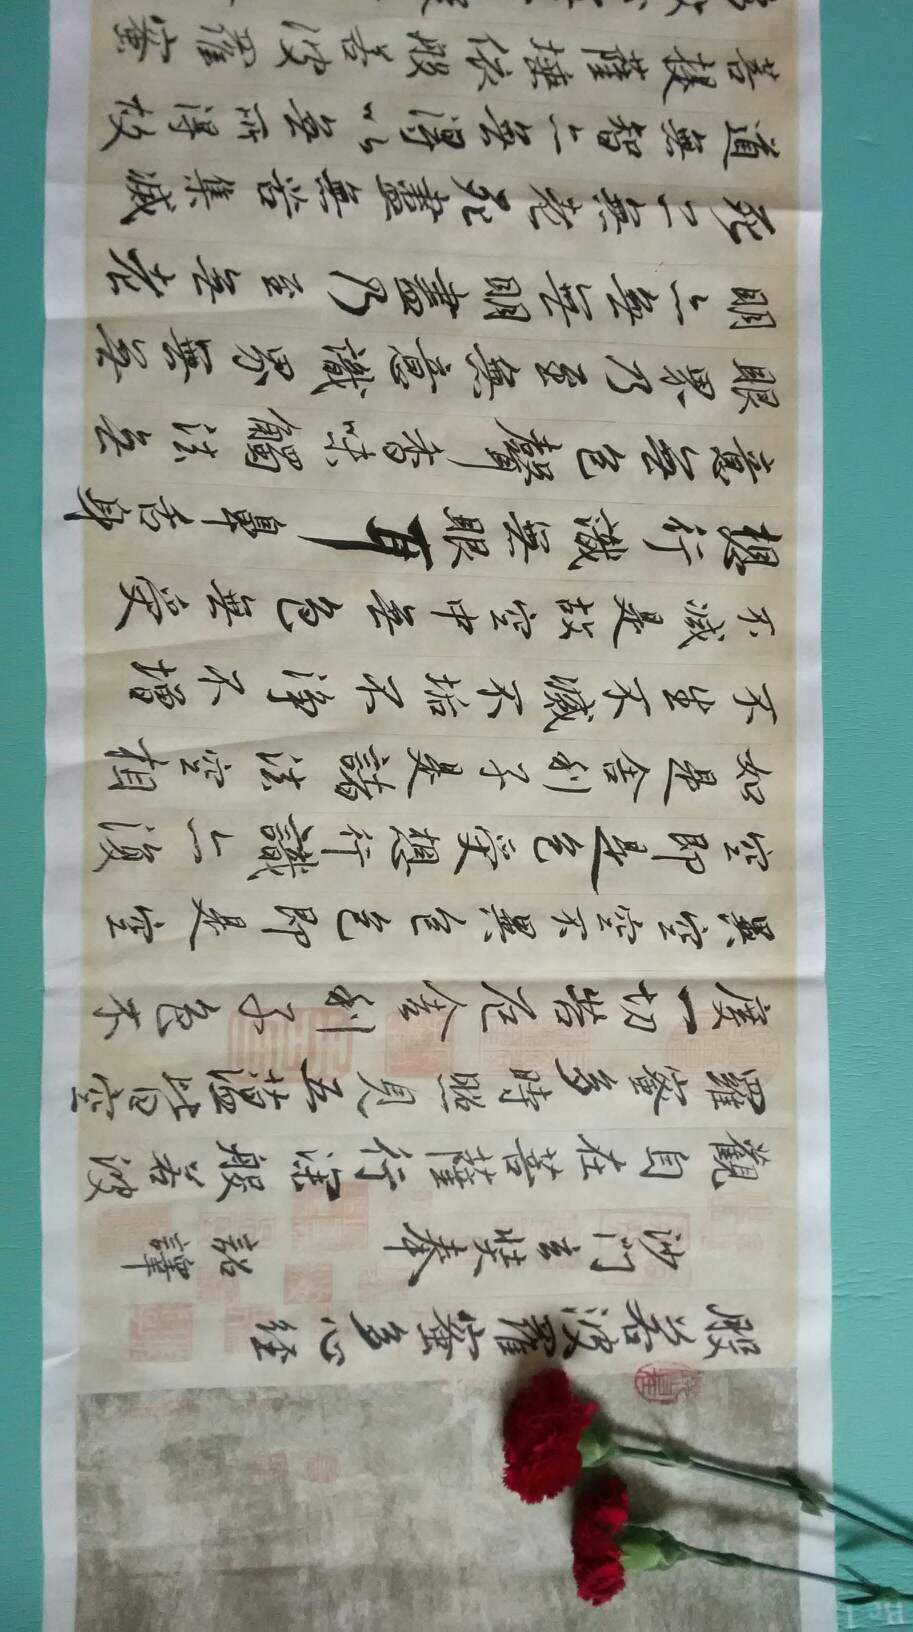 般若波羅蜜多心經
沙門玄奘奉 詔譯
觀自在菩薩行深般若波
羅蜜多時照見五蘊皆空
度一切苦厄舍利子色不
異空空不異色色即是空
空即是色受想行識亦復
如是舍利子是諸法空相
不生不滅不垢不淨不增
不減是故空中無色無受
想行識無眼耳鼻舌身
意無色聲香味觸法無
眼界乃至無意識界無無
明亦無無明盡乃至無老
死亦無老死盡無苦集滅
道無智亦無得以無所得故
菩提薩埵依般若波羅蜜